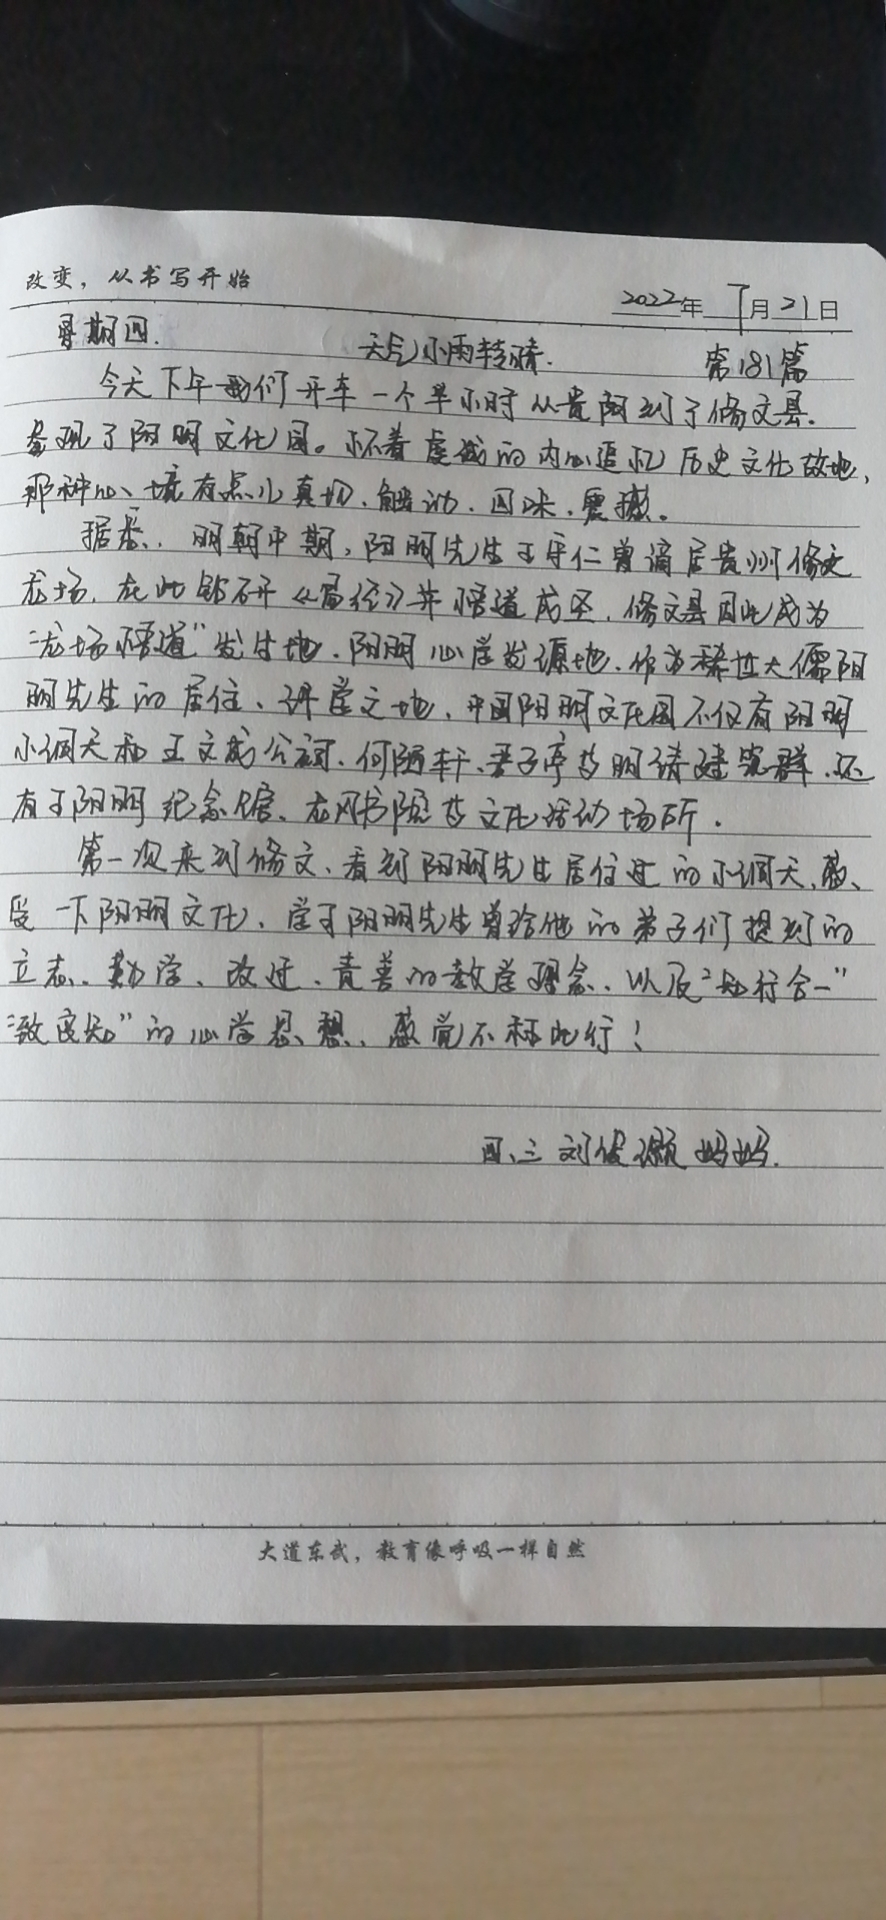 改变，从书写开始
2022年 7月21日
星期四. 天气小雨转晴. 第181篇
今天下午我们开车一个半小时从贵阳到了修文县.
参观了阳明文化园。怀着虔诚的内心追忆历史文化故地,
那种心境有点儿真切、触动、回味、震撼。
据悉、明朝中期,阳明先生王守仁曾谪居贵州修文
龙场、在此钻研《易经》并悟道成圣,修文县因此成为
“龙场悟道”发生地、阳明心学发源地、作为稀世大儒阳
明先生的居住、讲学之地、中国阳明文化园不仅有阳明
小洞天和王文成公祠、何陋轩、君子亭等明清建筑群、还
有王阳明纪念馆、龙冈书院等文化活动场所.
第一次来到修文、看到阳明先生居住过的小洞天,感
受一下阳明文化、学习阳明先生曾给他的弟子们提到的
立志、勤学、改过、责善的教学理念、以及“知行合一”
“致良知”的心学思想、感觉不秫此行!
四、三 刘俊灏妈妈.
大道东武，教育像呼吸一样自然